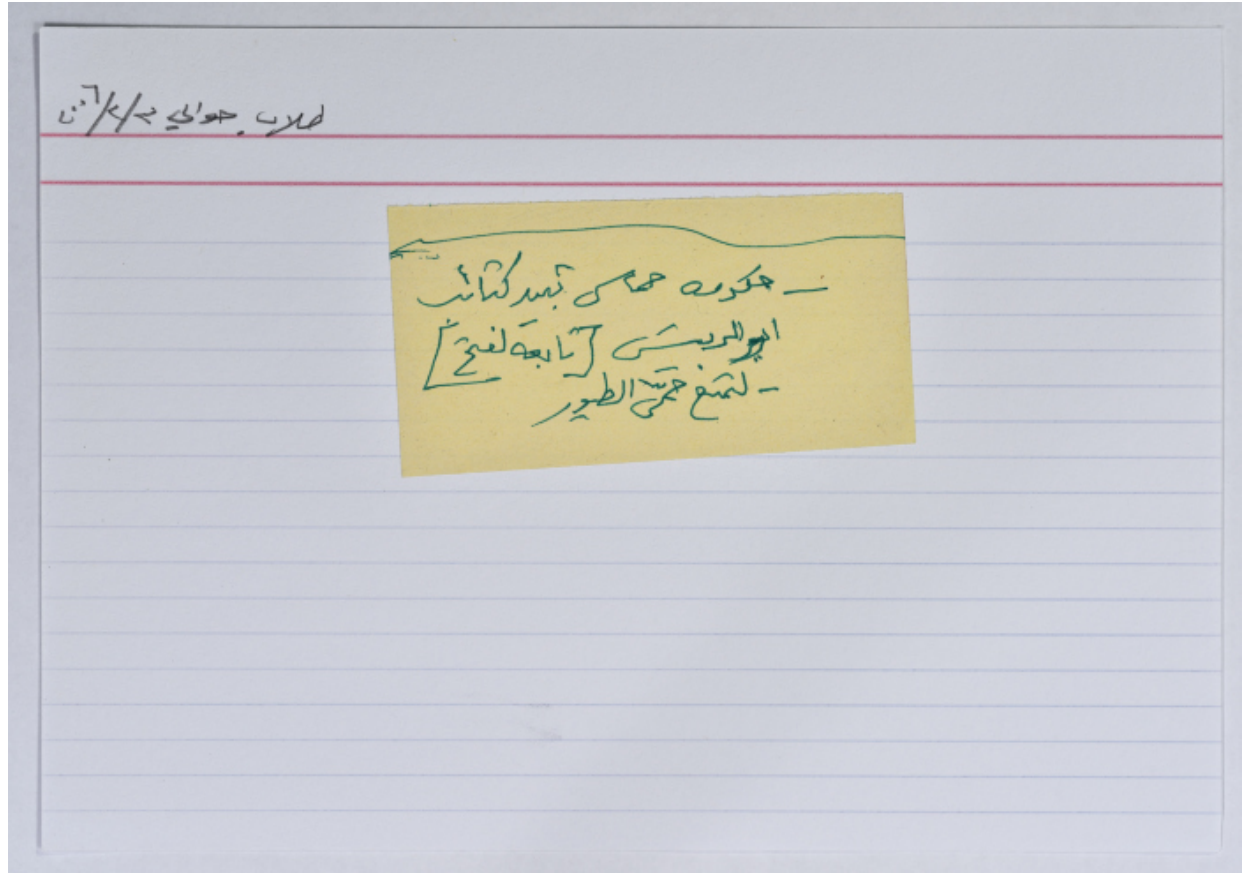 طلاب حوالي ٢/٢/٢٠٠٦
- حكومه حماس تبيد كتائب
ابو الريش [تابعة لفتح]
- لتمنع حمّى الطيور